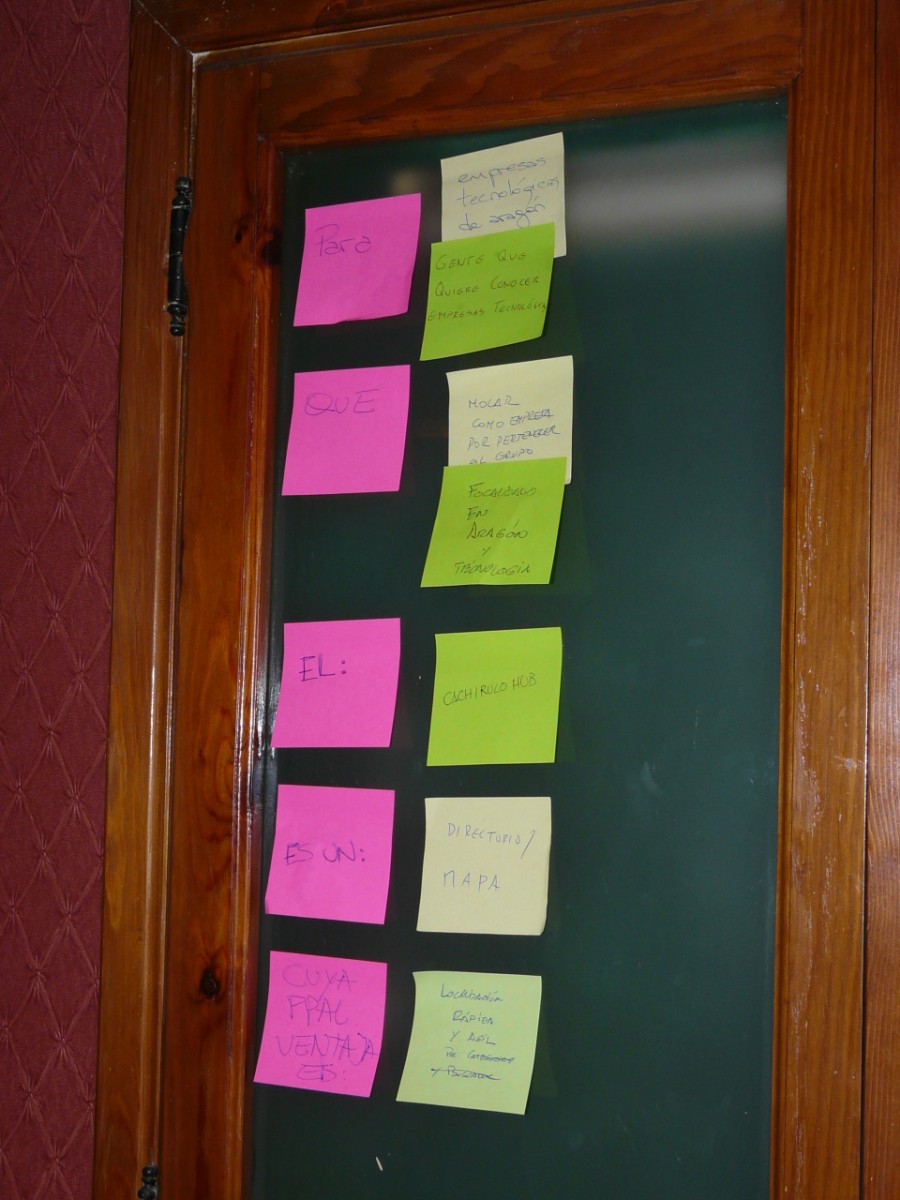 Para
empresas
tecnológicas
de aragón
GENTE QUE
QUIERE CONOCER
EMPRESAS
QUE
MOLAR
COMO EMPRESA
POR PERTENECER
AL GRUPO
FOCALIZADO
EN
ARAGÓN
Y
TECNOLOGÍA
EL:
CACHIRULO HUB
ES UN:
DIRECTORIO/
MAPA
CUYA
PPAL.
VENTAJA
ES:
RÁPIDA
Y ÁGIL